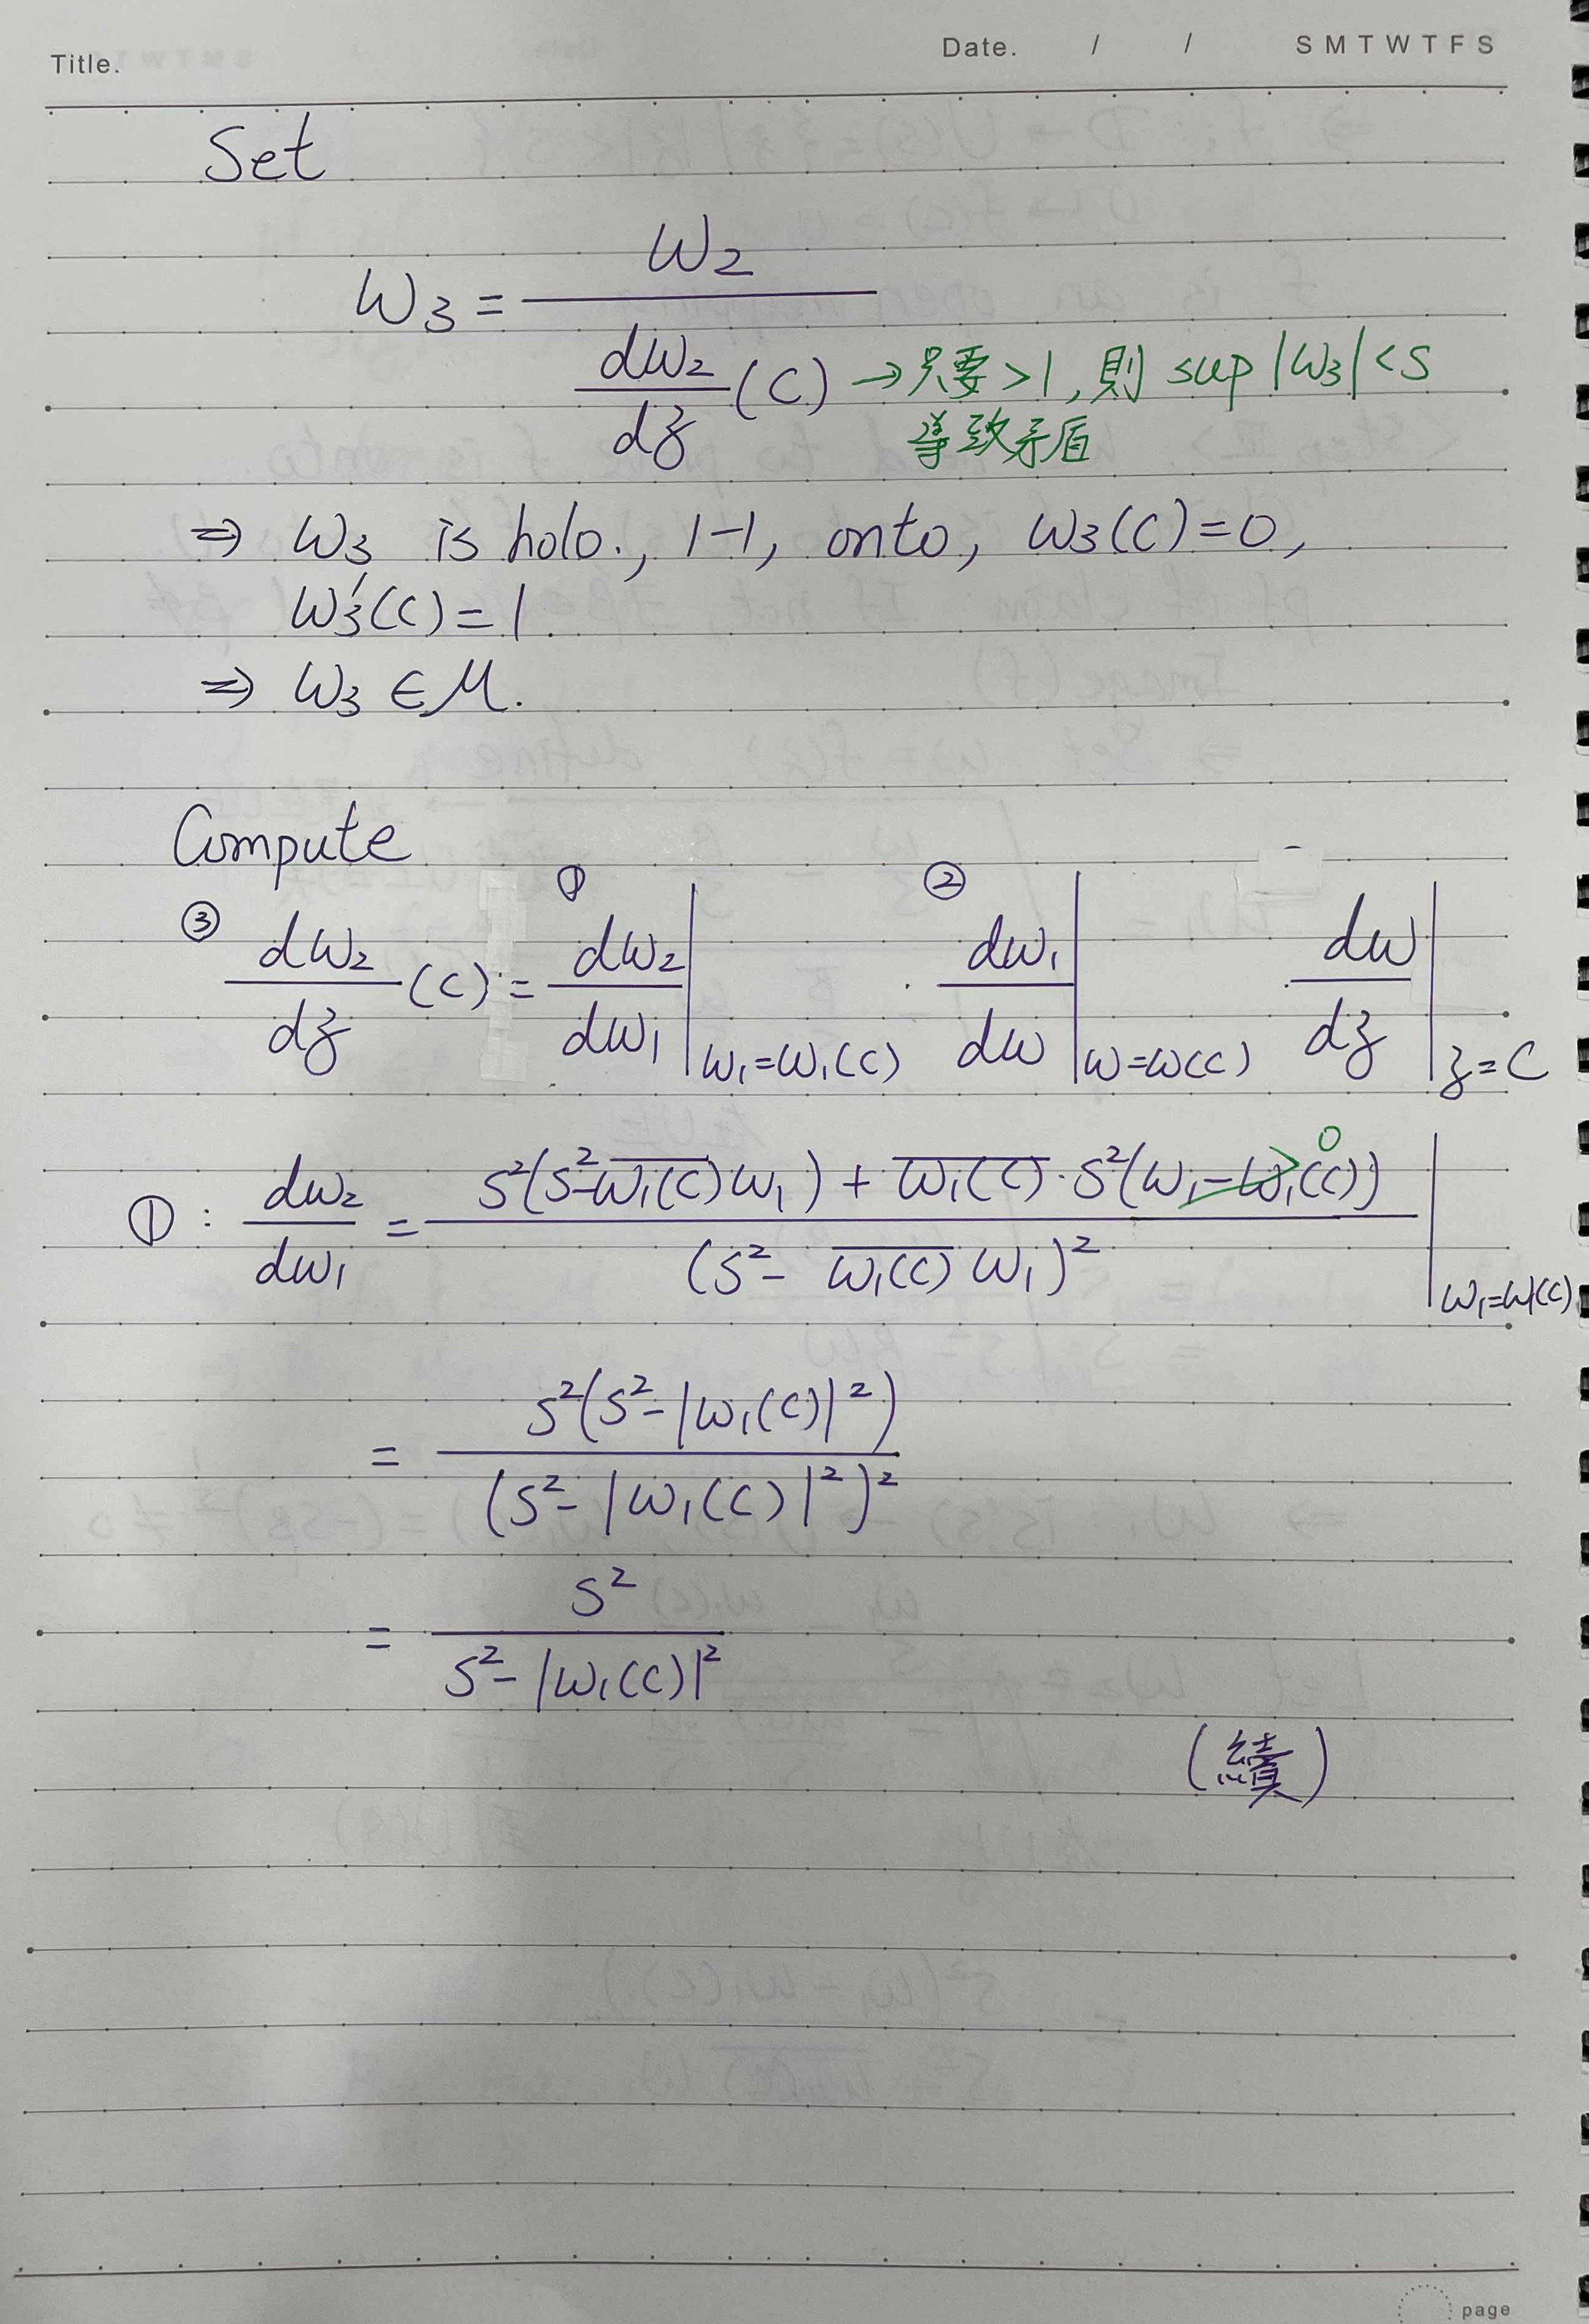 Title.
Date. / / S M T W T F S
Set
w₃ = w₂ / (dw₂/dz (c)) → 只要 > 1, 則 sup |w₃| < s
導致矛盾
⇒ w₃ is holo., 1-1, onto, w₃(c) = 0,
w₃'(c) = 1.
⇒ w₃ ∈ M.
Compute
③ dw₂/dz (c) = ① dw₂/dw₁ |_{w₁=w₁(c)} · ② dw₁/dw |_{w=w(c)} · dw/dz |_{z=c}
① : dw₂/dw₁ = [s²(s² - \overline{w₁(c)} w₁) + \overline{w₁(c)} · s²(w₁ - w₁(c))] / (s² - \overline{w₁(c)} w₁)² |_{w₁=w₁(c)}
0
= s²(s² - |w₁(c)|²) / (s² - |w₁(c)|²)²
= s² / (s² - |w₁(c)|²)
(續)
page